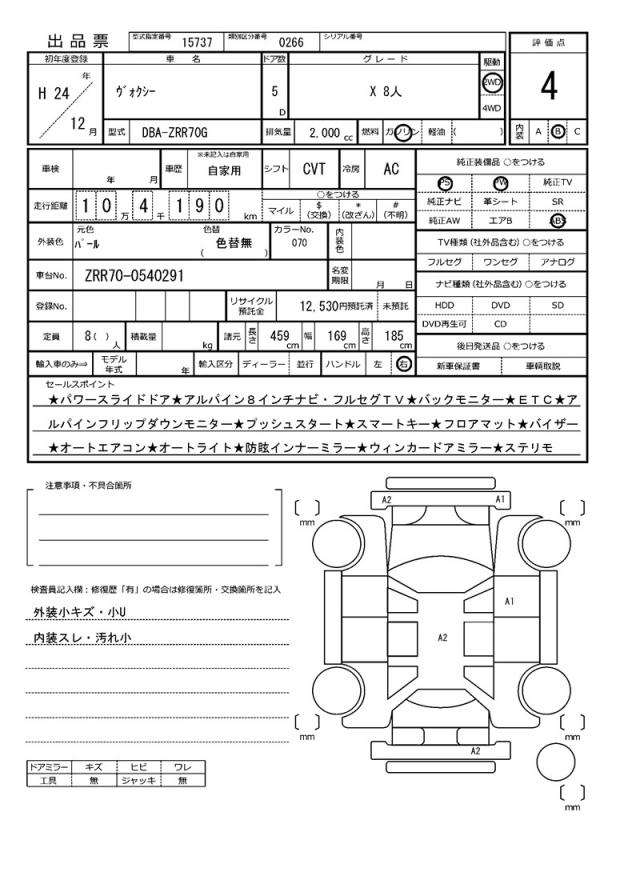 出品票 型式指定番号 15737 類別区分番号 0266 シリアル番号
評価点
初年度登録 車名 ドア数 グレード 駆動
H 24 年 ヴォクシー 5 D X 8人 2WD 4
12 月 4WD
型式 DBA-ZRR70G 排気量 2,000 cc 燃料 ガソリン 軽油 ( ) 内装 A B C
車検 年 月 車歴 ※未記入は自家用 自家用 シフト CVT 冷房 AC 純正装備品 ○をつける
PS PW 純正TV
走行距離 10万4千190 km ○をつける 純正ナビ 革シート SR
マイル $(交換) *(改ざん) #(不明) 純正AW エアB ABS
外装色 元色 パール 色替 色替無 ( ) カラーNo. 070 内装色 TV種類(社外品含む)○をつける
フルセグ ワンセグ アナログ
車台No. ZRR70-0540291 名変期限 月 日 ナビ種類(社外品含む)○をつける
登録No. リサイクル預託金 12,530円預託済 未預託 HDD DVD SD
DVD再生可 CD
定員 8( )人 積載量 kg 諸元 長さ 459 cm 幅 169 cm 高さ 185 cm 後日発送品 ○をつける
輸入車のみ⇒ モデル年式 年 輸入区分 ディーラー 並行 ハンドル 左 右 新車保証書 車輌取説
セールスポイント
★パワースライドドア★アルパイン8インチナビ・フルセグTV★バックモニター★ETC★ア
ルパインフリップダウンモニター★プッシュスタート★スマートキー★フロアマット★バイザー
★オートエアコン★オートライト★防眩インナーミラー★ウィンカードアミラー★ステリモ
注意事項・不具合箇所
A2 A1
mm mm
検査員記入欄:修復歴「有」の場合は修復箇所・交換箇所を記入
外装小キズ・小U
A1
内装スレ・汚れ小
A2
mm mm
A2
ドアミラー キズ ヒビ ワレ
工具 無 ジャッキ 無
mm